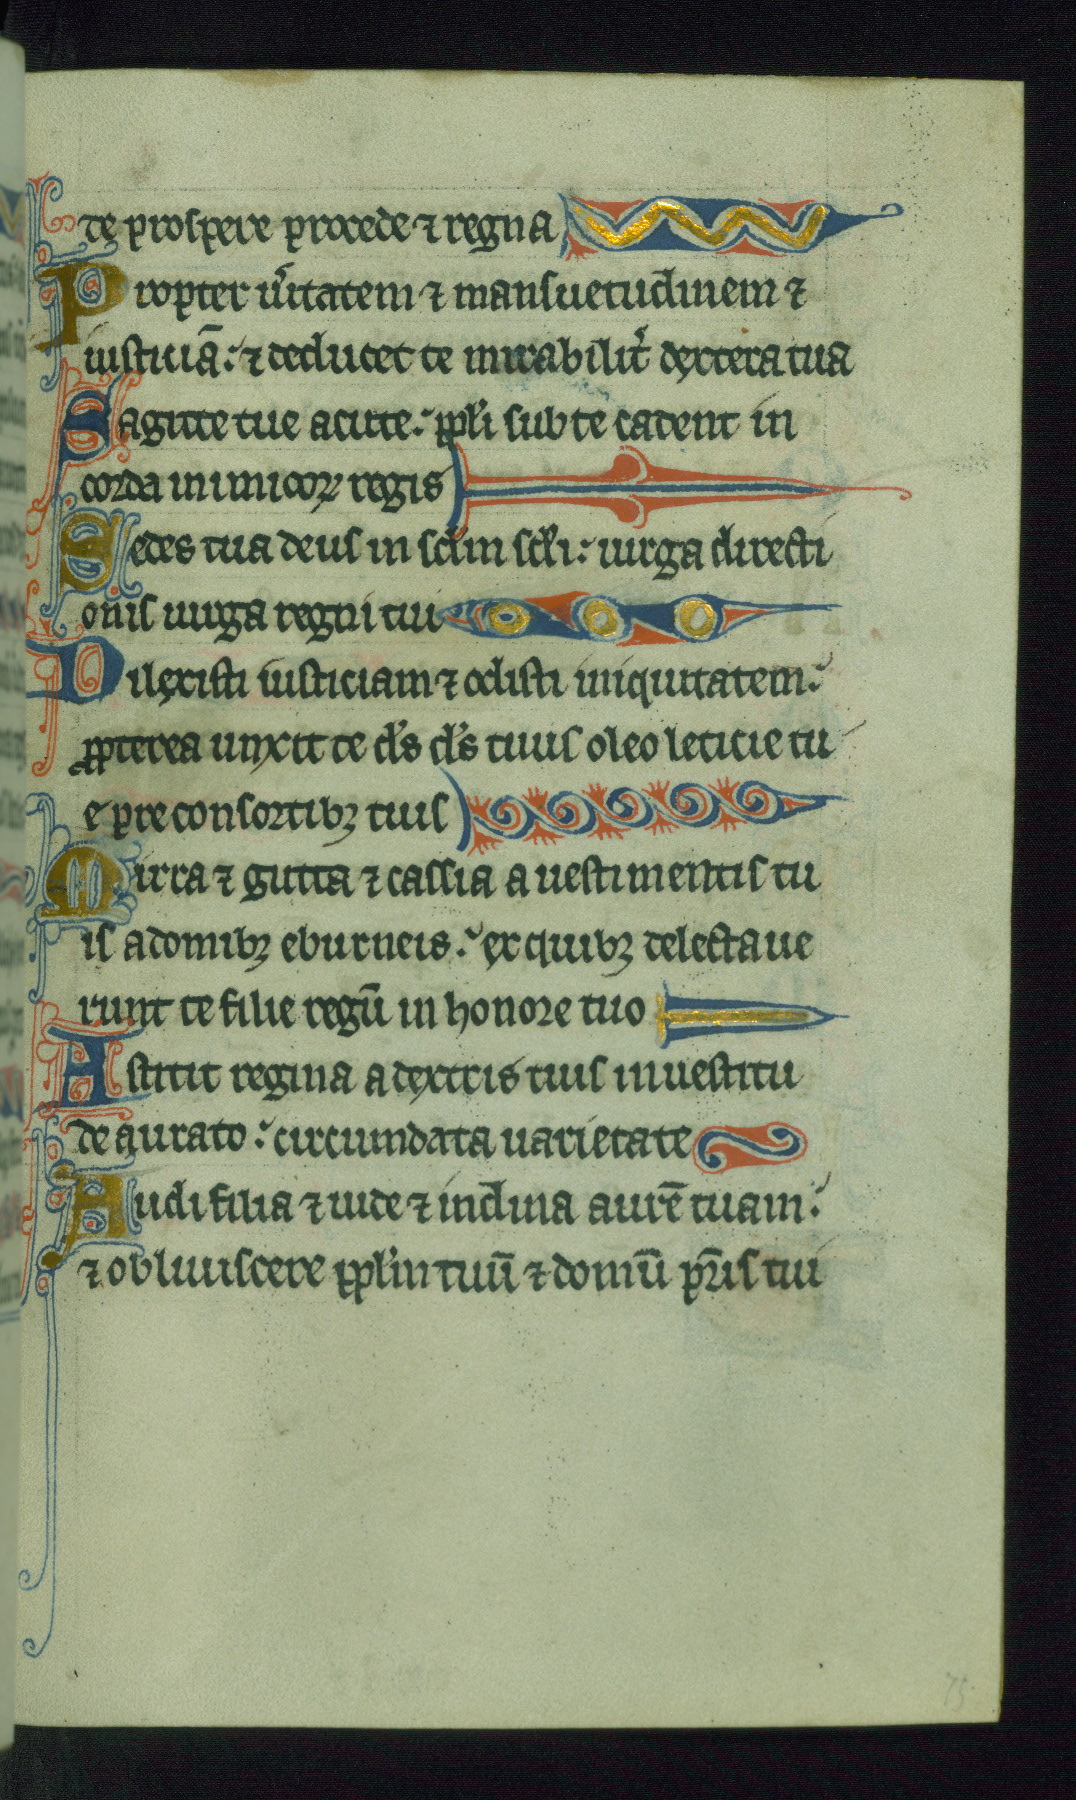 de prospere procede ⁊ regna
Propter u̾itatem ⁊ mansuetudinem ⁊
iusticiā : ⁊ deducet te mirabilit̾ dextera tua
Sagitte tue acute : ppl̾i sub te cadent in
corda inimicoꝝ regis
Sedes tua deus in scl̾m scl̾i : uirga directi
onis uirga regni tui
Dilexisti iusticiam ⁊ odisti iniquitatem :
ꝓpterea unxit te d̾s d̾s tuus oleo leticie tu
e pre consortibꝫ tuis
Mirra ⁊ gutta ⁊ cassia a uestimentis tu
is a domibꝫ eburneis : ex quibꝫ delectaue
runt te filie regū in honore tuo
Astitit regina a dextris tuis in uestitu
de aurato : circumdata uarietate
Audi filia ⁊ uide ⁊ inclina aurē tuam :
⁊ obliuiscere ppl̾m tuū ⁊ domū pr̄is tui
75